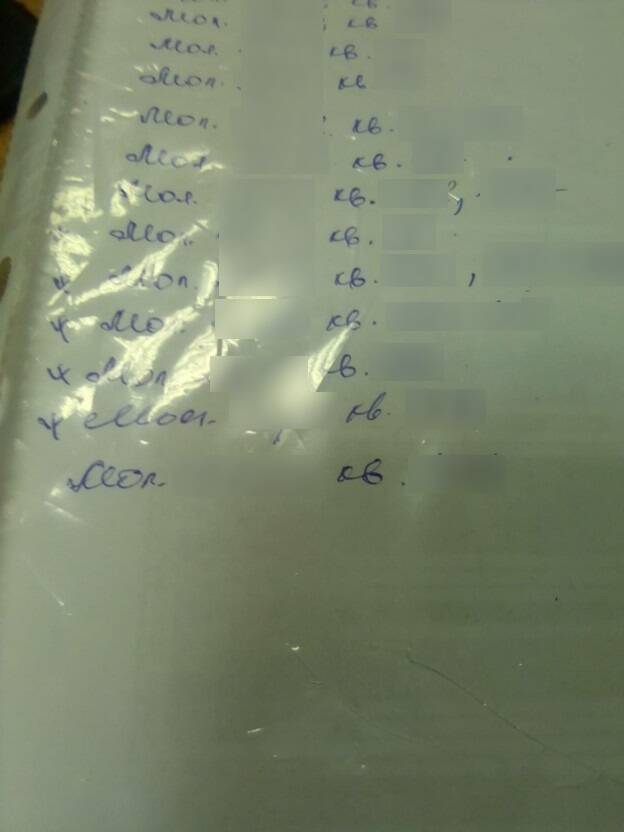 кв
Мол. кв
Мол. кв.
Мол. кв
Мол. кв.
Мол. кв.
Мол. кв. ,
Мол. кв.
Мол. кв. ,
Мол. кв.
Мол кв.
Мол. кв.
Мол. кв.